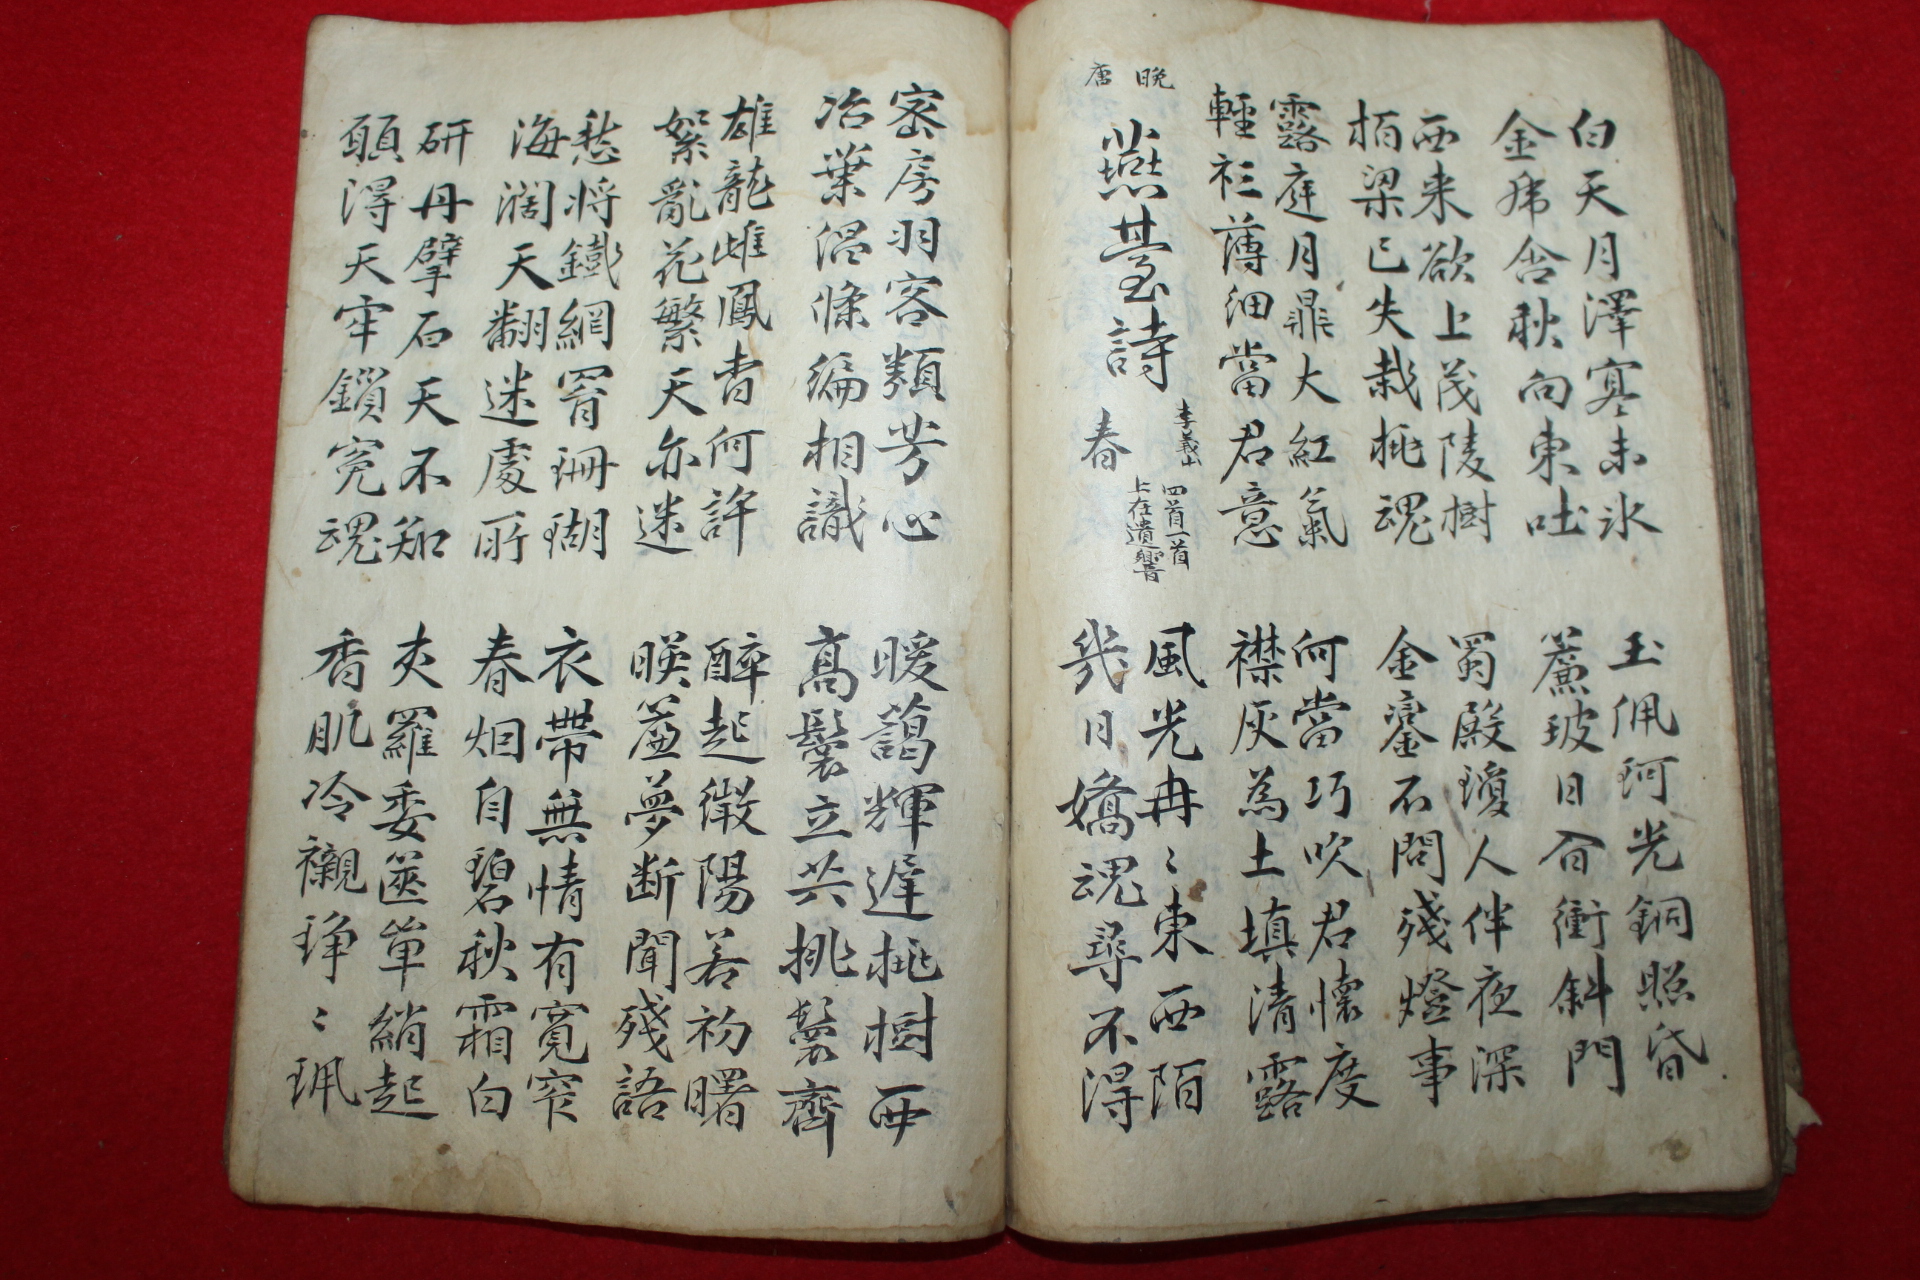 白天月澤寒未氷
金虎含秋向東吐
玉佩珂光銅照昏
簾波日衝斜門
西来欲上茂陵樹
栢梁已失栽桃魂
蜀殿瓊人伴夜深
金鑾不問殘燈事
露庭月鼎大紅氣
輕衫薄細當君意
何當巧吹君懷度
襟灰為土填清露
晚唐
燕臺詩
李義山
春
四首一首
上在遺響
風光冉〻東西陌
幾日嬌魂尋不得
密房羽客類芳心
冶葉温條編相識
暖藹輝遲桃樹西
高鬟立共挑鬟齊
雄龍雌鳳杳何許
絮亂花繁天亦迷
醉起微陽若初曙
暎簾夢断聞殘語
愁将鐵網罥珊瑚
海濶天翻迷處所
衣帶無情有寬窄
春烟自碧秋霜白
研丹擘石天不知
願得天牢鎖冤魂
夾羅委篋單綃起
香肌冷襯琤〻珮